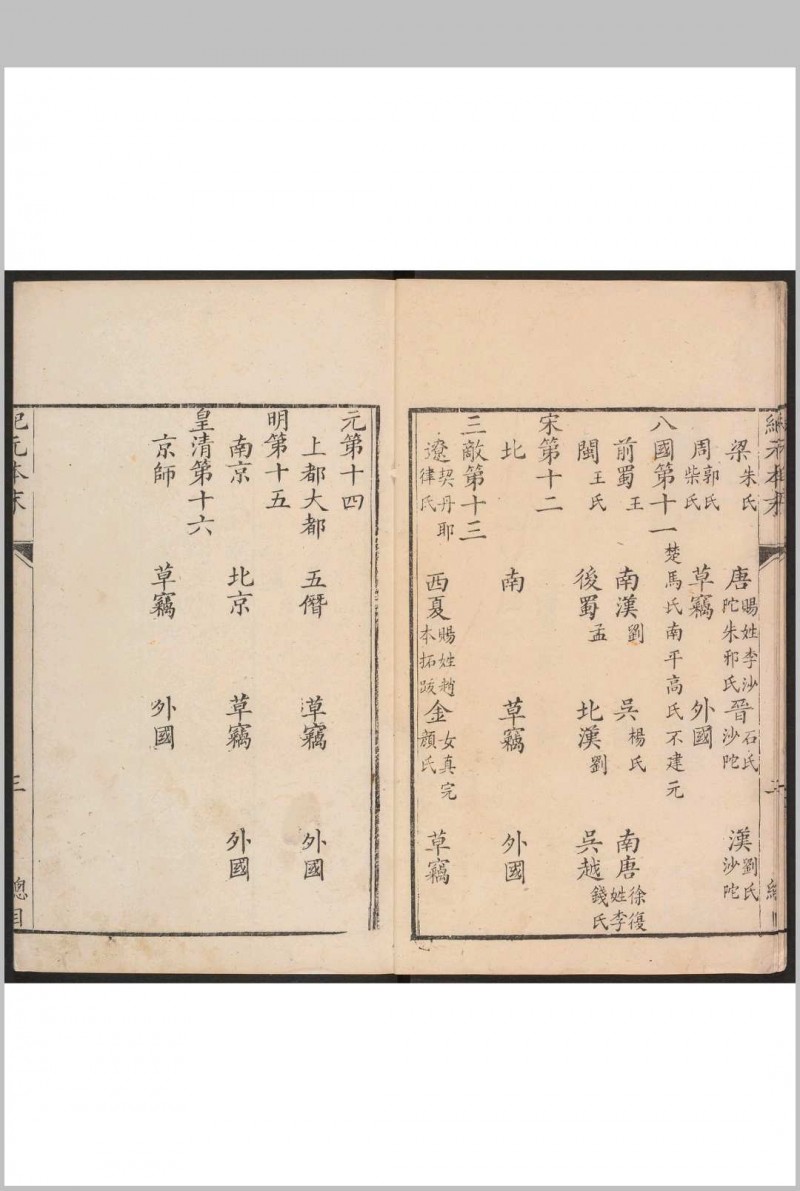 梁朱氏 唐賜姓李沙陀朱邪氏 晉石氏沙陀 漢劉氏沙陀
周郭氏柴氏 草竊 外國
八國第十一楚馬氏南平高氏不建元
前蜀王 南漢劉 吳楊氏 南唐徐復姓李
閩王氏 後蜀孟 北漢劉 吳越錢氏
宋第十二
北 南 草竊 外國
三敵第十三
遼契丹耶律氏 西夏賜姓趙本拓跋 金女真完顏氏 草竊
元第十四
上都大都 五僭 草竊 外國
明第十五
南京 北京 草竊 外國
皇清第十六
京師 草竊 外國
紀元本末 三 總目